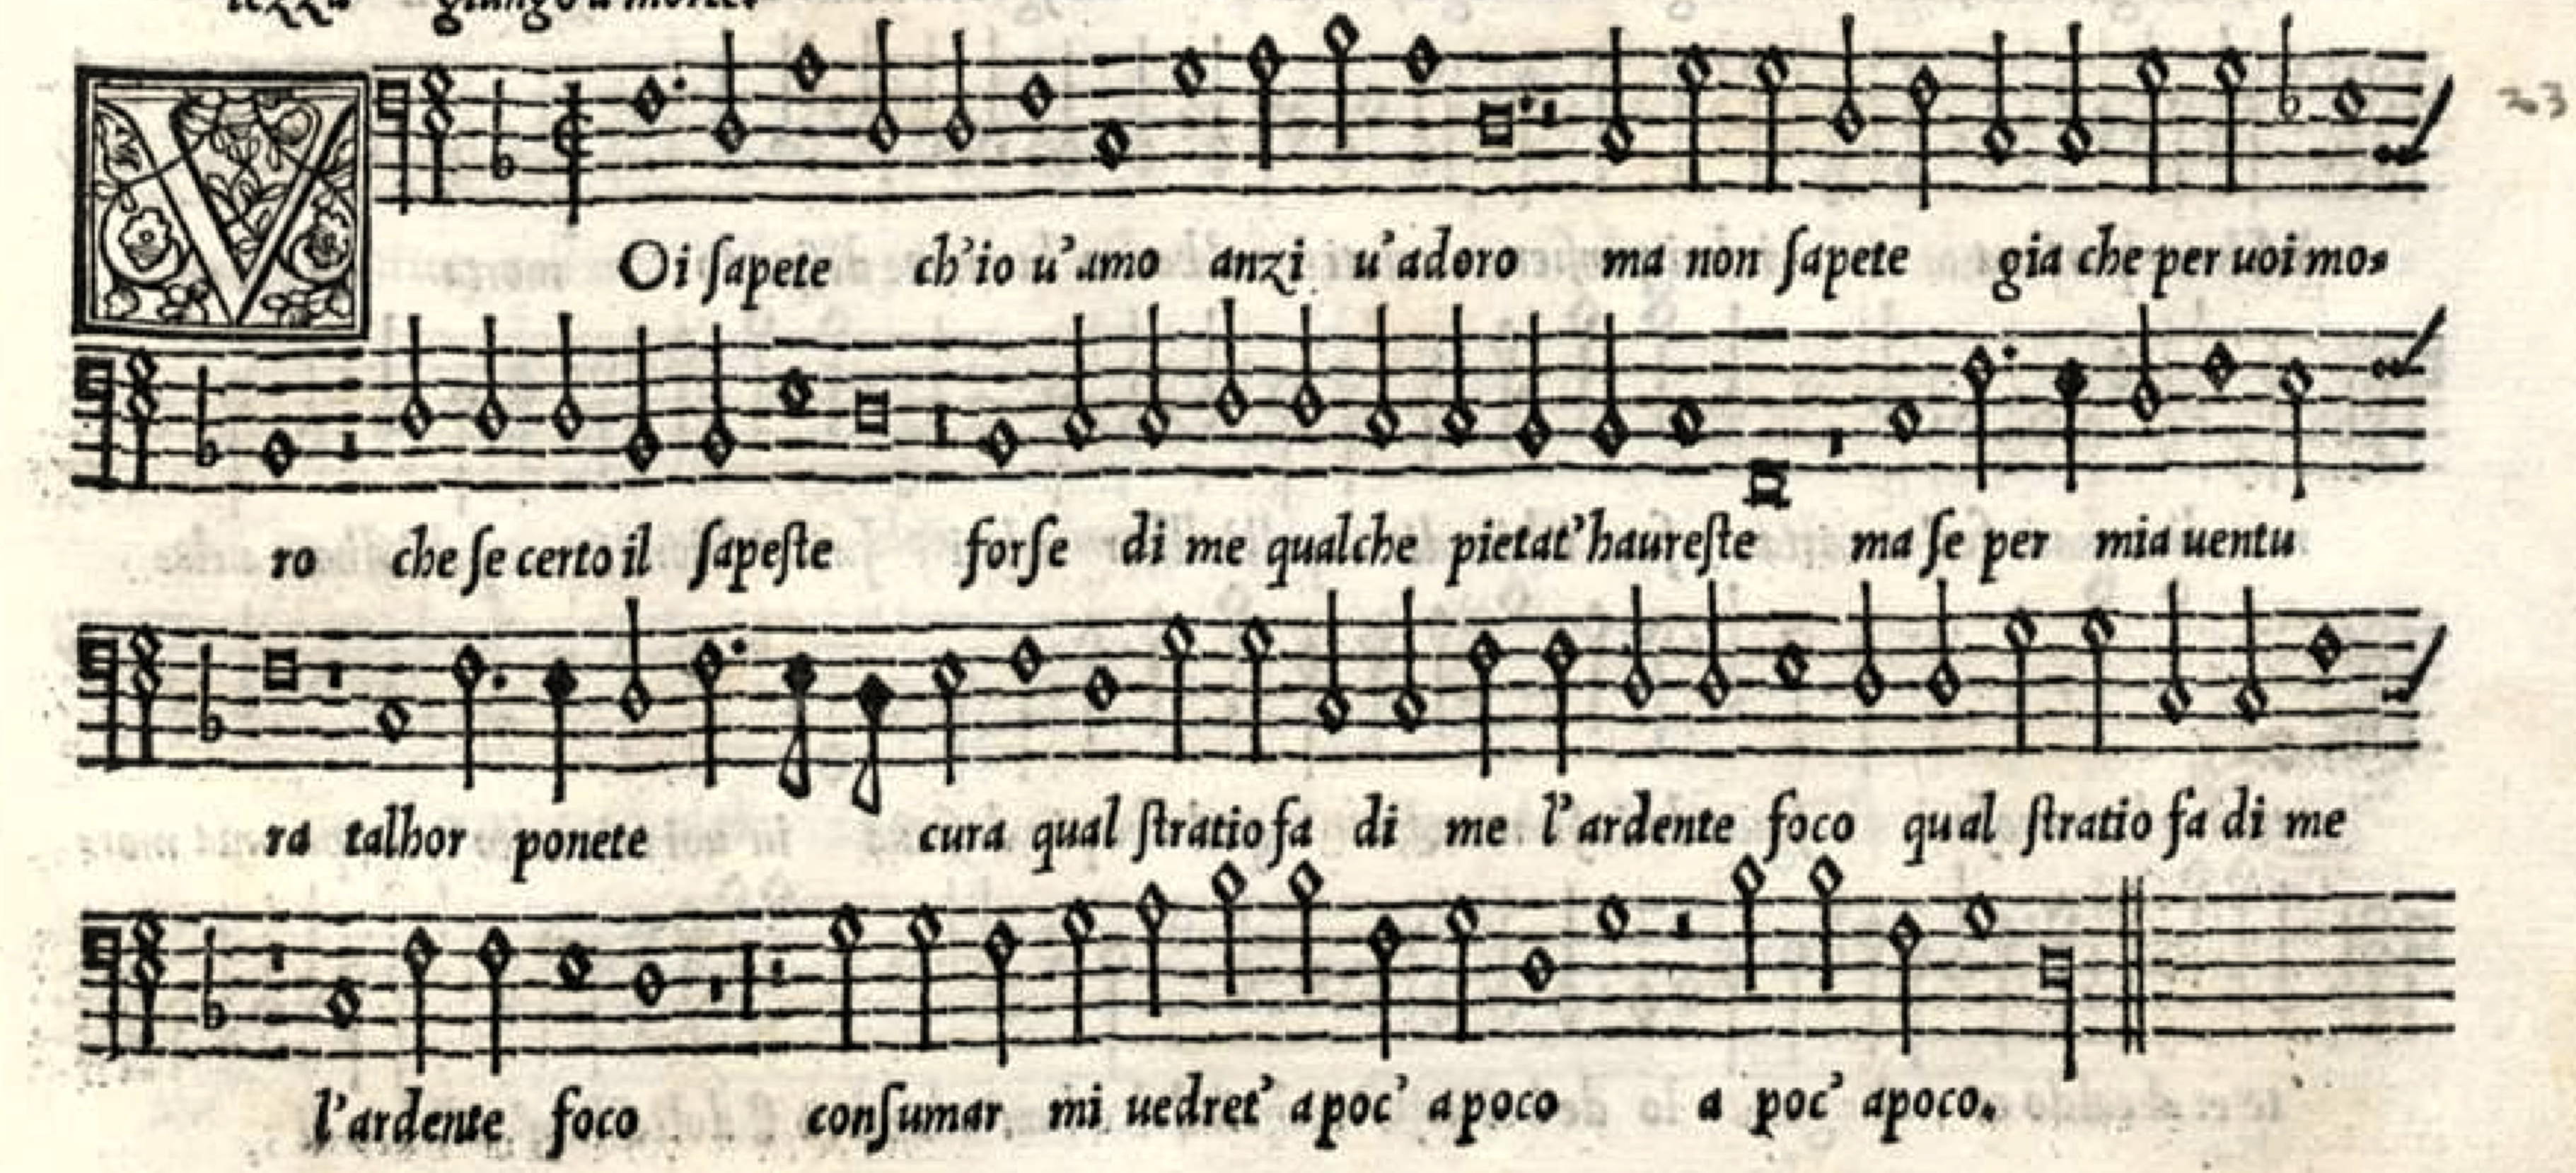 giungo a morte.
V
Oi ſapete ch'io u'amo anzi u'adoro ma non ſapete gia che per uoi mo-
ro che ſe certo il ſapeſte forſe di me qualche pietat'haureſte ma ſe per mia uentu
ra talhor ponete cura qual ſtratio fa di me l'ardente foco qual ſtratio fa di me
l'ardente foco conſumar mi uedret' apoc' apoco a poc' apoco.